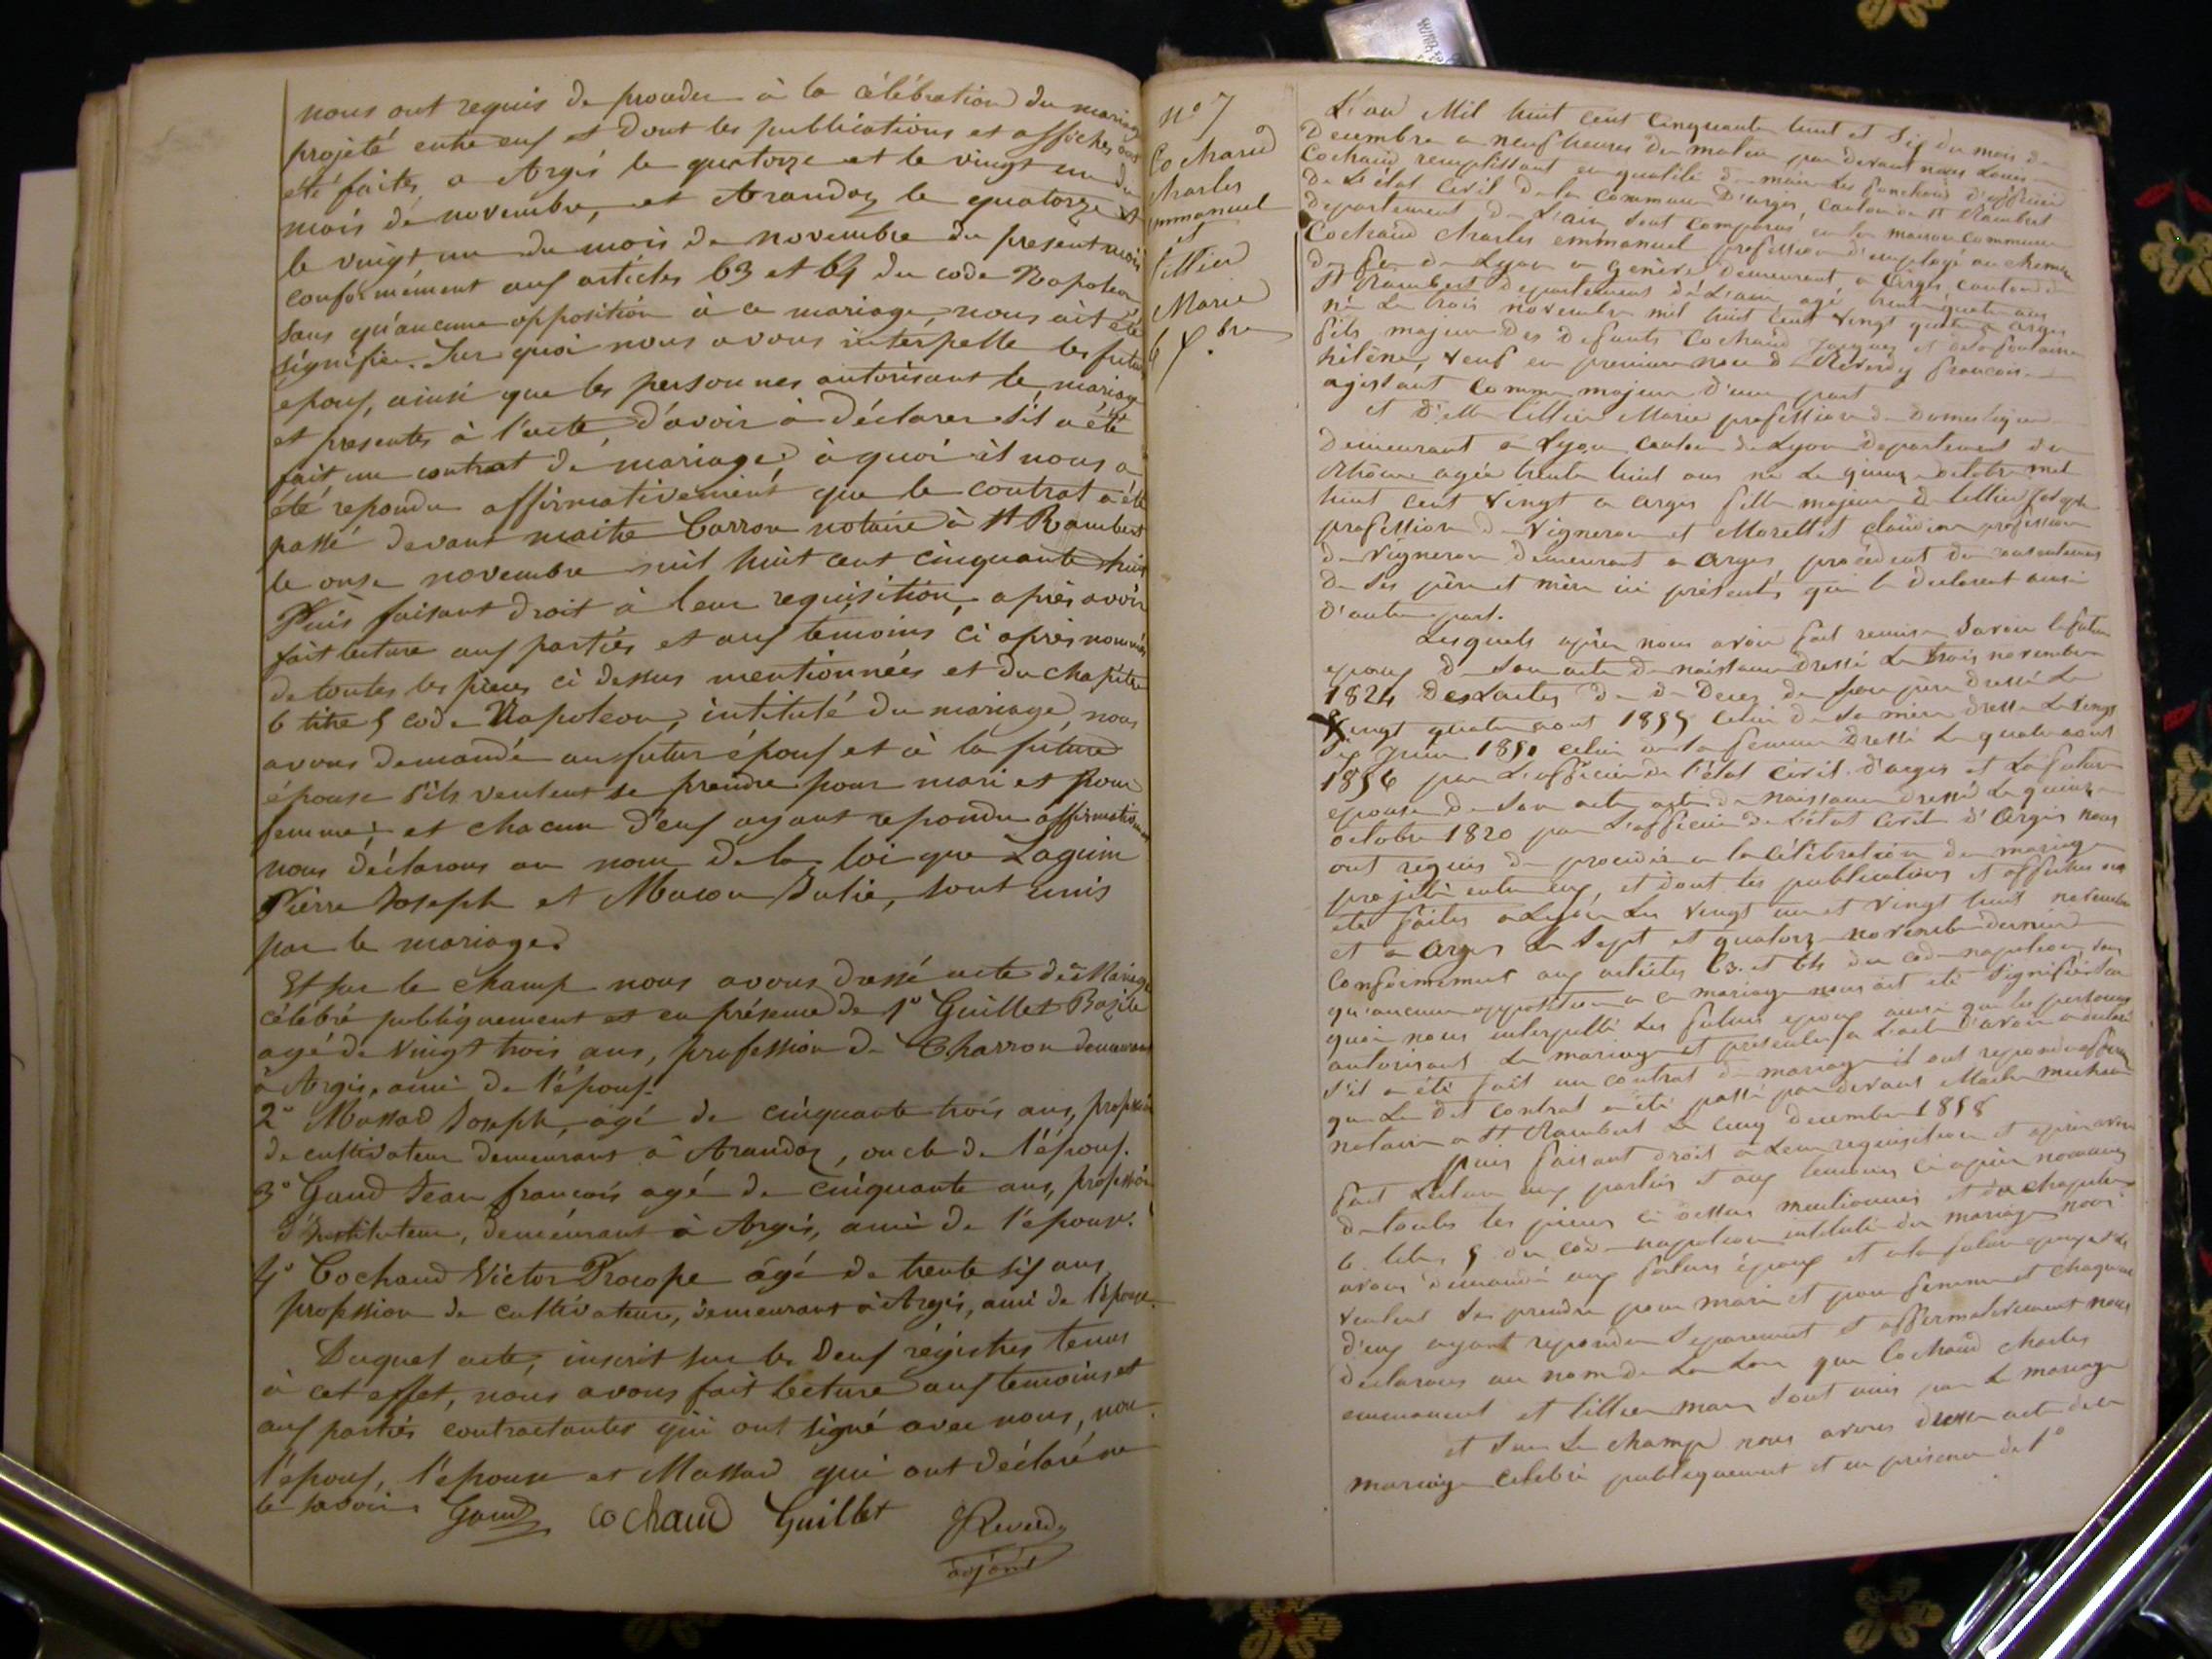 nous ont requis de proceder à la célébration du mariage
projeté entre eux et dont les publications et affiches ont
été faites, a Argis le quatorze et le vingt un du
mois de novembre, et Arandaz le quatorze et
le vingt un du mois de novembre du present mois
conformément aux articles 63 et 64 du code Napoleon
sans qu'aucune opposition à ce mariage, nous ait été
signifiée. Sur quoi nous avons interpellé les futurs
epoux, ainsi que les personnes autorisant le mariage
et presentes à l'acte, d'avoir à déclarer s'il a été
fait un contrat de mariage, à quoi il nous a
été repondu affirmativement que le contrat a été
passé devant maitre Carron notaire à St Rambert
le onze novembre mil huit cent cinquante huit
Puis faisant droit à leur requisition, après avoir
fait lecture aux parties et aux temoins ci après nommés
de toutes les pieces ci dessus mentionnées et du chapitre
6 titre 5 code Napoleon, intitulé du mariage, nous
avons demandé au futur époux et à la future
épouse s'ils veulent se prendre pour mari et pour
femme; et chacun d'eux ayant repondu affirmativement
nous déclarons au nom de la loi que Laguin
Pierre Joseph et Macon Julie, sont unis
par le mariage.
Et sur le champ nous avons dressé acte de ce Mariage
célébré publiquement et en présence de 1° Guillet Bazile
agé de vingt trois ans, profession de Charron demeurant
à Argis, ami de l'époux.
2° Massad Joseph, agé de cinquante trois ans, profession
de cultivateur demeurant à Arandaz, oncle de l'époux.
3° Gaud Jean françois agé de cinquante ans, profession
d'Instituteur, demeurant à Argis, ami de l'épouse.
4° Cochaud Victor Procope agé de trente six ans,
profession de cultivateur, demeurant à Argis, ami de l'épouse.
Duquel acte, inscrit sur les deux régistres tenus
à cet effet, nous avons fait lecture aux temoins et
aux parties contractantes qui ont signé avec nous, non
l'époux, l'épouse et Massad qui ont déclaré ne
le savoir. Gaud Cochaud Guillet Reverdy
adjoint
n° 7
Cochaud
charles
emmanuel
et
tillier
Marie
6 Xbre
L'an Mil huit cent Cinquante huit et six du mois de
Decembre a neuf heures du matin par devant nous Louis
Cochaud remplissant en qualité de maire les fonctions d'officier
de L'état Civil de la Commune D'argis, canton de St Rambert
Departement de L'ain, sont comparus en la maison commune
Cochaud charles emmanuel profession d'employé au chemin
de fer de Lyon a Genève demeurant a Argis, canton de
St Rambert departement de L'ain, agé trente quatre ans
né Le trois novembre mil huit cent vingt quatre a argis
fils majeur des defunts Cochaud Jacques et
hélène, veuf en premiere noce de Reverdy francoise
agissant comme majeur d'une part
et D'elle tillier Marie profession de Domestique
Demeurant a Lyon canton de Lyon departement du
Rhône agée trente huit ans né Le quinze octobre mil
huit cent vingt a argis fille majeure de tillier Joseph
profession de vigneron et Morellet claudine profession
de vigneron demeurant a argis, procédent du consentement
de ses père et mère ici présents qui le declarent ainsi
D'autre part.
Lesquels après nous avoir fait remise savoir le futur
epoux de son acte de naissance dressé Le trois novembre
1824 des actes de Deces de son père dressé Le
vingt quatre aout 1855 celui de sa mère dressé Le vingt
six Juin 1850 celui de la femme dressé Le quatre aout
1856 par L'officier de l'état civil d'argis et La future
epouse de son acte acte de naissance dressé Le quinze
octobre 1820 par L'officier de L'état Civil d'Argis nous
ont requis de procéder a la célébration du mariage
projeté entre eux, et dont les publications et affiches ont
été faites a Lyon Les vingt un et vingt huit novembre
et a Argis Le sept et quatorze novembre dernier
Conformement aux articles 63 et 64 du code napoleon, sans
qu'aucune opposition a ce mariage nous ait été signifiée sur
quoi nous interpellé les futurs epoux ainsi que les personnes
autorisant Le mariage et présentes a L'acte d'avoir a declaré
s'il a été fait un contrat de mariage il ont repondu
que Le dit contrat a été passé par devant Maitre
notaire a St Rambert Le cinq decembre 1858
Puis faisant droit a Leur requisition et après avoir
fait Lecture aux parties et aux temoins ci après nommés
de toutes les pieces ci dessus mentionnées et du chapitre
6 titre 5 du code napoleon intitulé du mariage nous
avons demandé aux futurs époux et a la future epouse s'ils
veulent se prendre pour mari et pour femme et chaqu'un
d'eux ayant repondu separement et affirmativement nous
declarons au nom de La Loi que Cochaud charles
emmanuel et tillier marie sont unis par Le mariage
et sur Le champ nous avons dressé acte de ce
mariage célébré publiquement et en présence de 1°